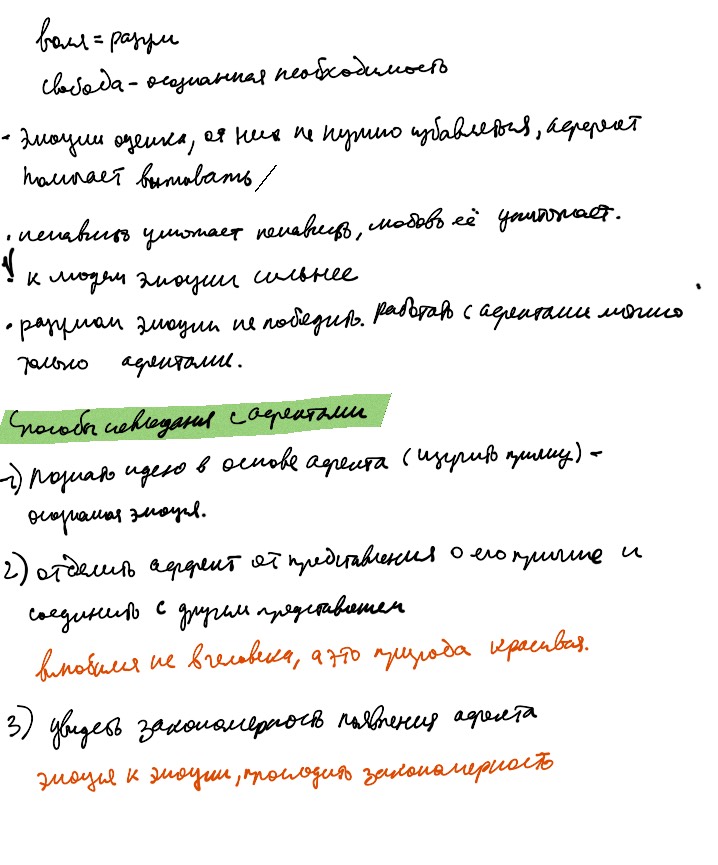 воля = разум
свобода - осознанная необходимость
- эмоции оценка, от них не нужно избавляться, аффект
помогает выживать /
• ненависть умножает ненависть, любовь её уничтожает.
! к людям эмоции сильнее
• разумом эмоции не победить. Работать с афектами можно
только афектами.
Способы совладания с афектами
1) Познать идею в основе афекта (изучить причину) -
осознаная эмоция.
2) отделить аффект от представления о его причине и
соединить с другим представлением
влюбился не в человека, а это природа красивая.
3) увидеть закономерность появления афекта
эмоция к эмоции, проследить закономерность